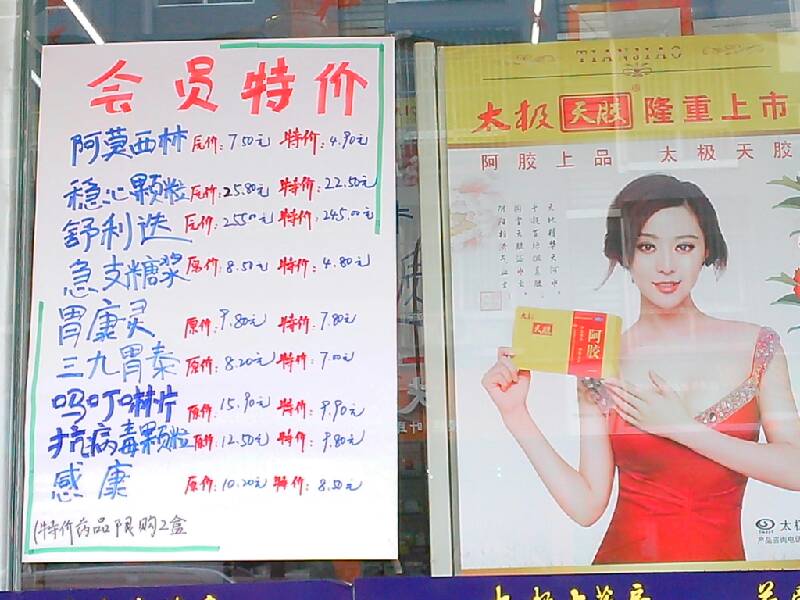 会员特价
阿莫西林 原价:7.50元 特价:4.90元
稳心颗粒 原价:25.80元 特价:22.50元
舒利迭 原价:255.00元 特价:245.00元
急支糖浆 原价:8.50元 特价:4.80元
胃康灵 原价:9.80元 特价:7.80元
三九胃泰 原价:8.20元 特价:7.00元
吗丁啉片 原价:15.90元 特价:9.90元
抗病毒颗粒 原价:12.50元 特价:9.80元
感康 原价:10.20元 特价:8.50元
(特价药品限购2盒
TIANJIAO
太极 天胶 隆重上市
阿胶上品 太极天胶
太极 天胶
阿胶
太极
产品咨询电话